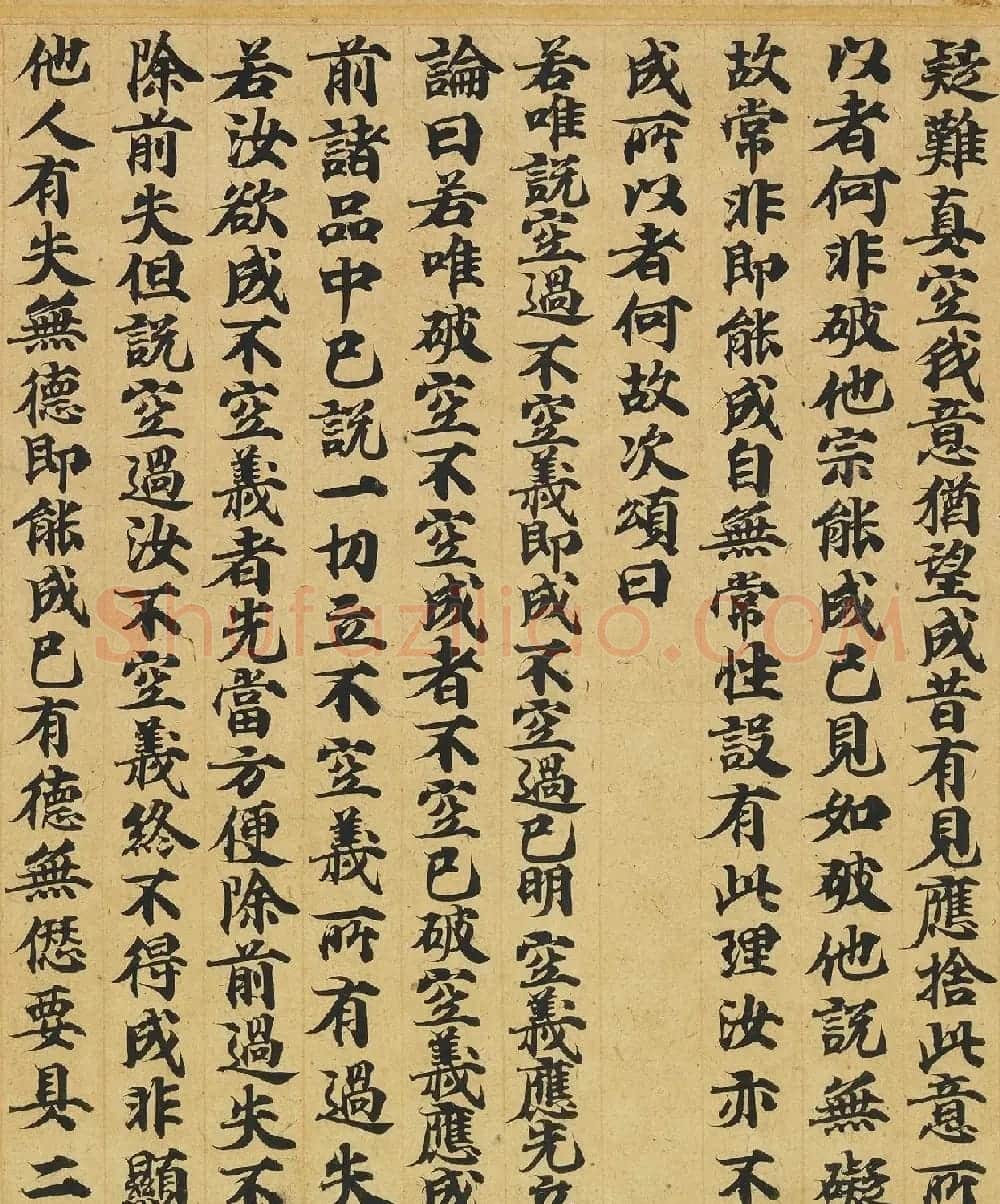 疑難真空我意猶望成昔有見應捨此意所
以者何非破他宗能成已見如破他說無礙
故常非即能成自無常性設有此理汝亦不
成所以者何故次頌曰
若唯説空過不空義即成不空過已明空義應先立
論曰若唯破空不空成者不空已破空義應成
前諸品中已説一切立不空義所有過失
若汝欲成不空義者先當方便除前過失不
除前失但説空過汝不空義終不得成非顯
他人有失無德即能成已有德無愆要具二
Shufaziliao.COM